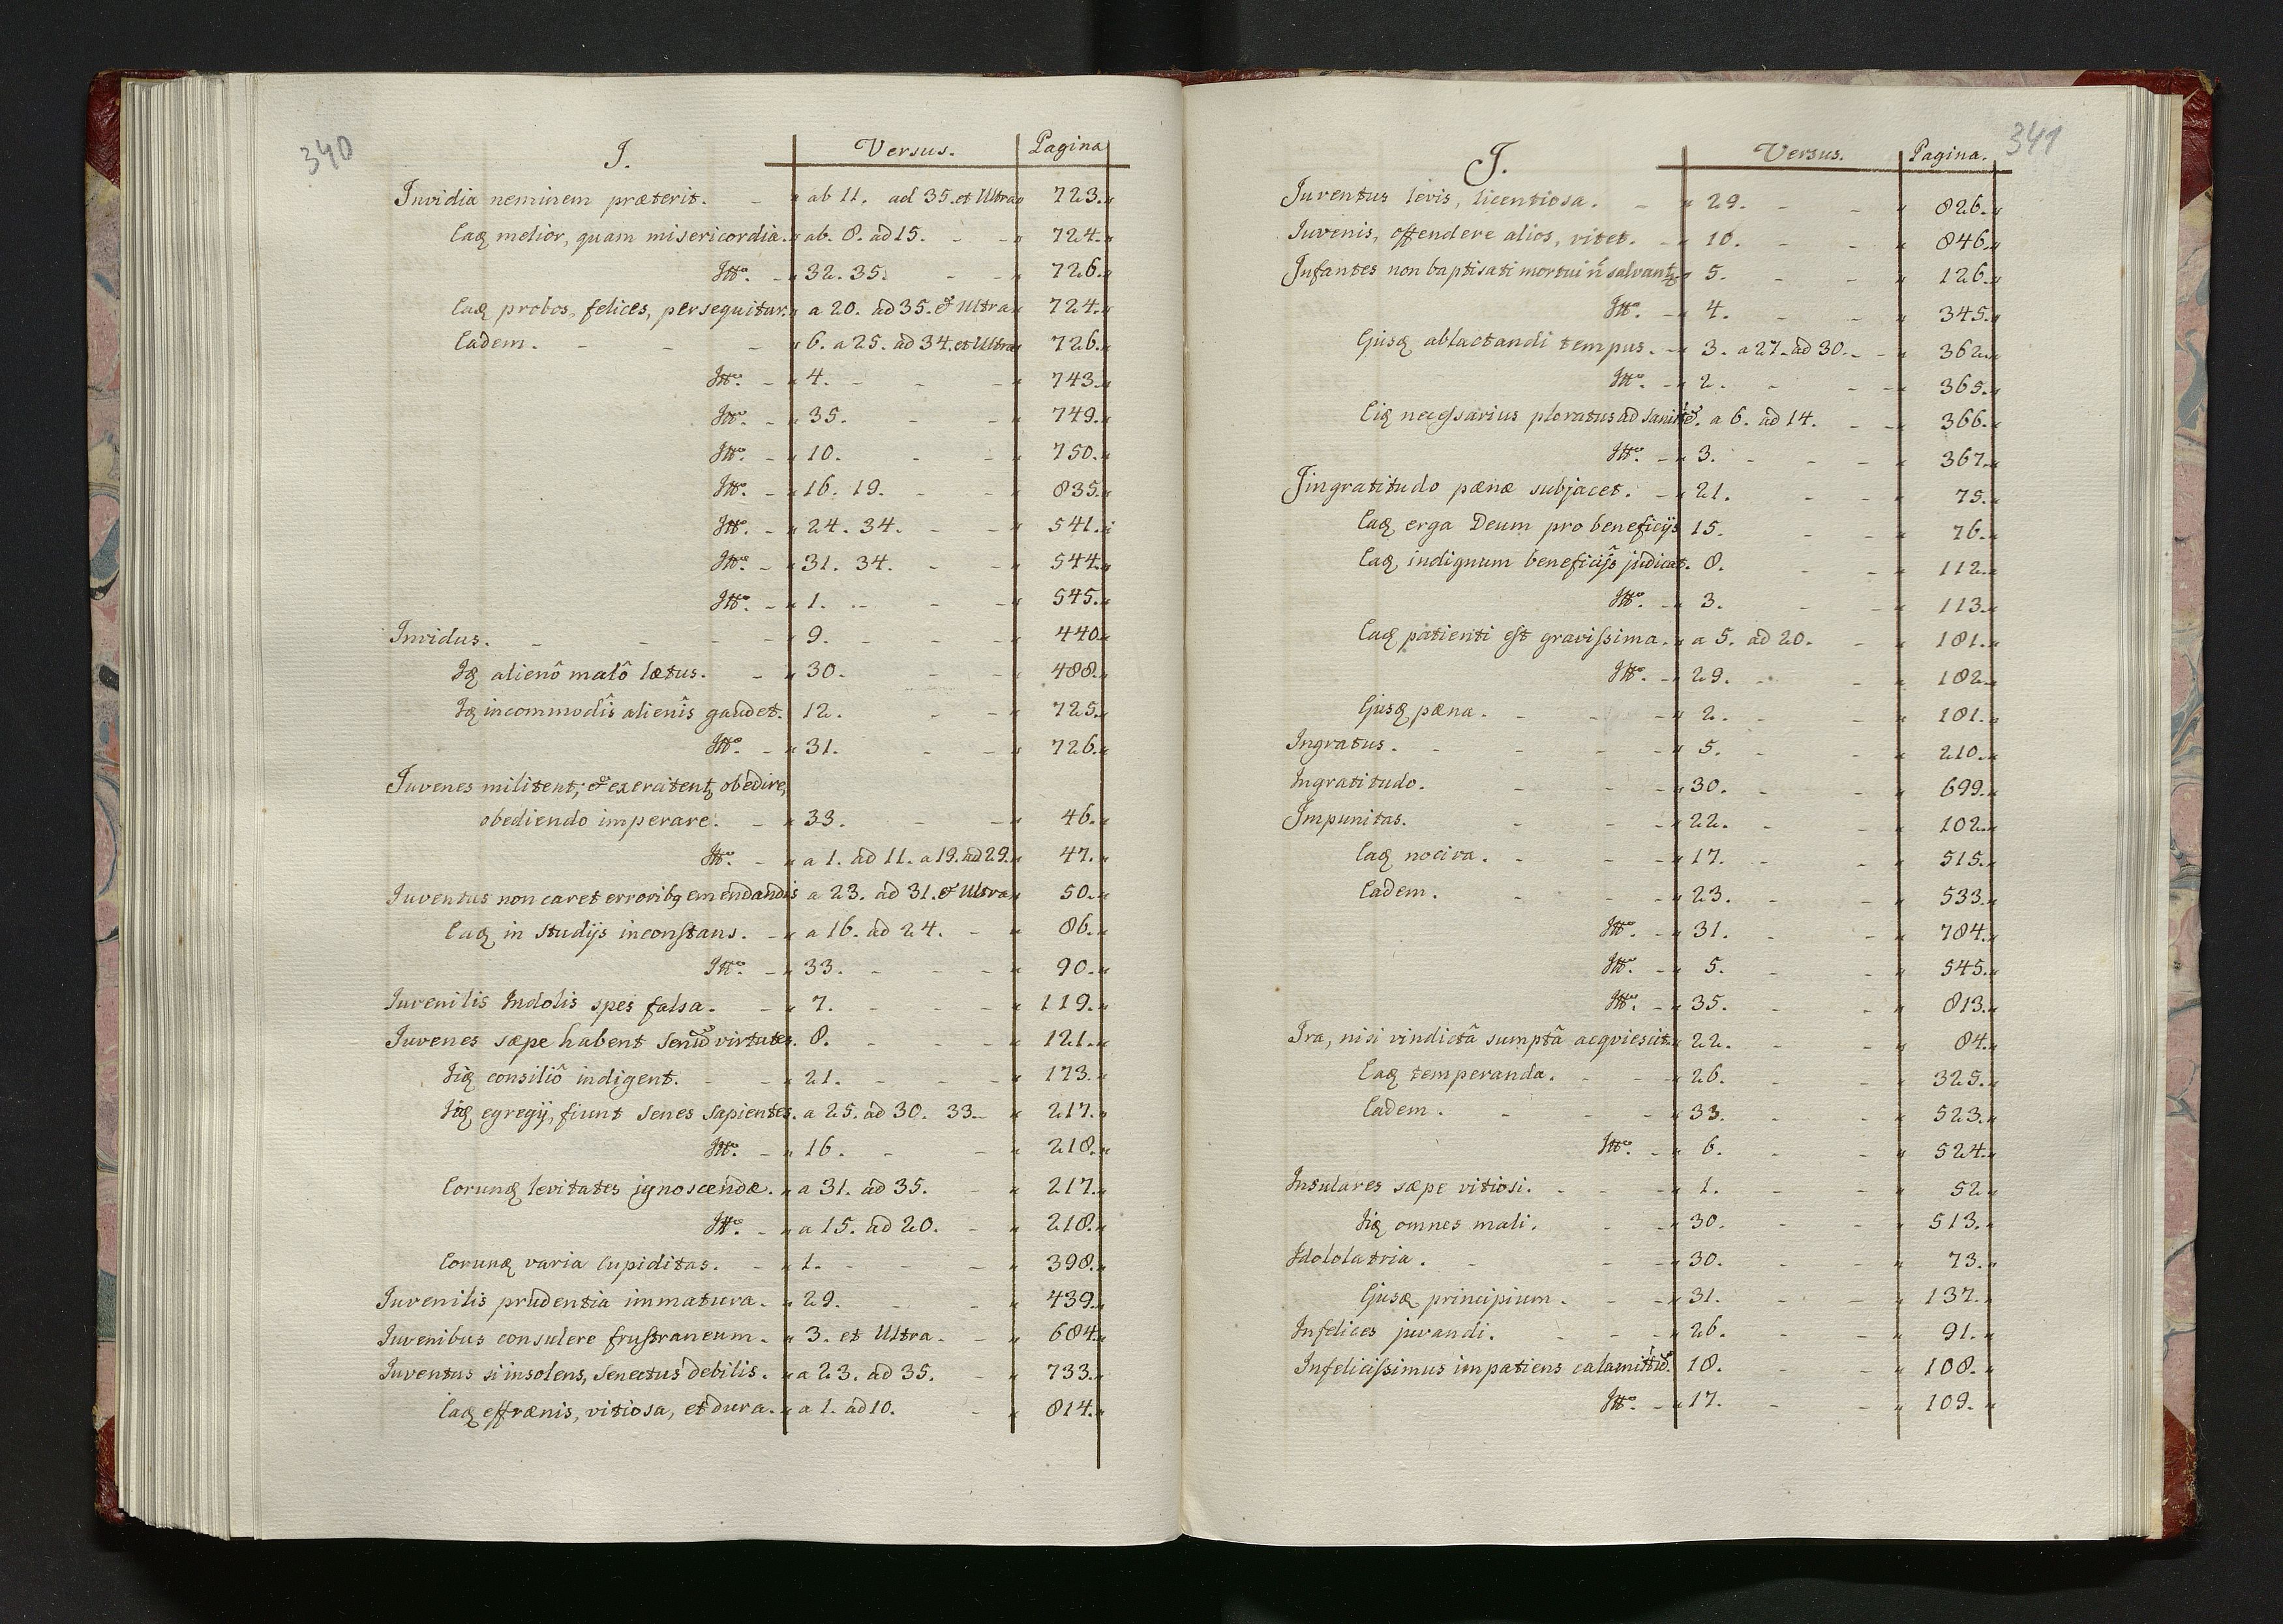 340
J. Versus. Pagina
Invidia neminem præterit. - " ab 11. ad 35. et Ultra " 723. "
Eaq melior, quam misericordia. " ab. 8. ad 15. - - " 724. "
Itt°. - " 32. 35. - - " 726. "
Eaq probos, felices, persequitur. " a 20. ad 35. & Ultra " 724. "
Eadem. - - - " 6. a 25. ad 34. et Ultra " 726. "
Itt°. - " 4. - - - " 743. "
Itt°. - " 35. - - " 749. "
Itt°. - " 10. - - " 750. "
Itt°. - " 16. 19. - - " 835. "
Itt°. - " 24. 34. - - " 541. "
Itt°. - " 31. 34. - - " 544. "
Itt°. - " 1. - - - " 545. "
Invidus. - - - - " 9. - - - " 440. "
Iq alienô malô lætus. - " 30. - - " 488. "
Iq incommodîs alienîs gaudet. 12. - - " 725. "
Itt°. - " 31. - - " 726. "
Iuvenes militent; & exercitentq obedire,
obediendo imperare. - " 33. - - " 46. "
Itt°. - " a 1. ad 11. a 19. ad 29. " 47. "
Iuventus non caret erroribq emendandis a 23. ad 31. & Ultra " 50. "
Eaq in studijs inconstans. - " a 16. ad 24. - " 86. "
Itt°. - " 33. - - - " 90. "
Iuvenilis Indolis spes falsa. - - " 7. - - - " 119. "
Iuvenes sæpe habent senũ virtutes. 8. - - - " 121. "
Iiq consiliô indigent. - - " 21. - - - " 173. "
Iiq egregij, fiunt senes sapientes. a 25. ad 30. 33. - " 217. "
Itt°. - " 16. - - " 218. "
Eorunq levitates ignoscendæ. " a 31. ad 35. - " 217. "
Itt°. - " a 15. ad 20. - " 218. "
Eorunq varia Cupiditas. - " 1. - - - " 398. "
Iuvenilis prudentia immatura. - " 29. - - " 439. "
Iuvenibus consulere frustraneum. - " 3. et Ultra. - " 684. "
Iuventus si insolens, Senectus debilis. - " a 23. ad 35. - " 733. "
Eaq effrænis, vitiosa, et dura. - " a 1. ad 10. - " 814. "
341
J. Versus. Pagina.
Iuventus levis, licentiosa. - " 29. - - " 826. "
Iuvenis, offendere alios, vitet. - " 10. - - " 846. "
Infantes non baptisati mortui ñ salvantq " 5. - - " 126. "
Itt°. - " 4. - - " 345. "
Ejusq ablactandi tempus. - " 3. a 27. ad 30. - - " 362. "
Itt°. - " 2. - - - " 365. "
Eiq necessarius ploratus ad . a 6. ad 14. - - " 366. "
Itt°. - " 3. - - - " 367. "
Iingratitudo pænæ subjacet. - " 21. - - " 75. "
Eaq erga Deum pro beneficijs 15. - - " 76. "
Eaq, indignum beneficijs judicat. 8. - - " 112. "
Itt°. - " 3. - - " 113. "
Eaq patienti est gravissima. - " a 5. ad 20. - " 181. "
Itt°. - " 29. - - " 182. "
Ejusq pæna. - - - " 2. - - " 181. "
Ingratus. - - - - " 5. - - " 210. "
Ingratitudo. - - - " 30. - - " 699. "
Impunitas. - - - " 22. - - " 102. "
Eaq nociva. - - - " 17. - - " 515. "
Eadem. - - - " 23. - - " 533. "
Itt°. - " 31. - - " 784. "
Itt°. - " 5. - - " 545. "
Itt°. - " 35. - - " 813. "
Ira, nisi vindictâ sumptâ acqviescit. " 22. - - " 84. "
Eaq temperanda. - - - " 26. - - " 325. "
Eadem. - - - " 33. - - " 523. "
Itt°. - " 6. - - " 524. "
Insulares sæpe vitiosi. - - - " 1. - - " 52 "
Iiq omnes mali. - - " 30. - - " 513. "
Idololatria. - - - " 30. - - " 73. "
Ejusq principium. - - - " 31. - - " 137. "
Infelices juvandi. - - - " 26. - - " 91. "
Infelicissimus impatiens . 18. - - " 108. "
Itt°. - " 17. - - " 109. "